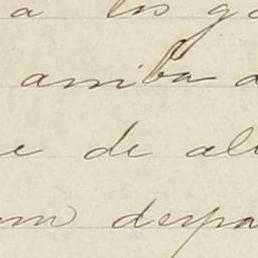 a los ga
arriba a
e de ali
om despa